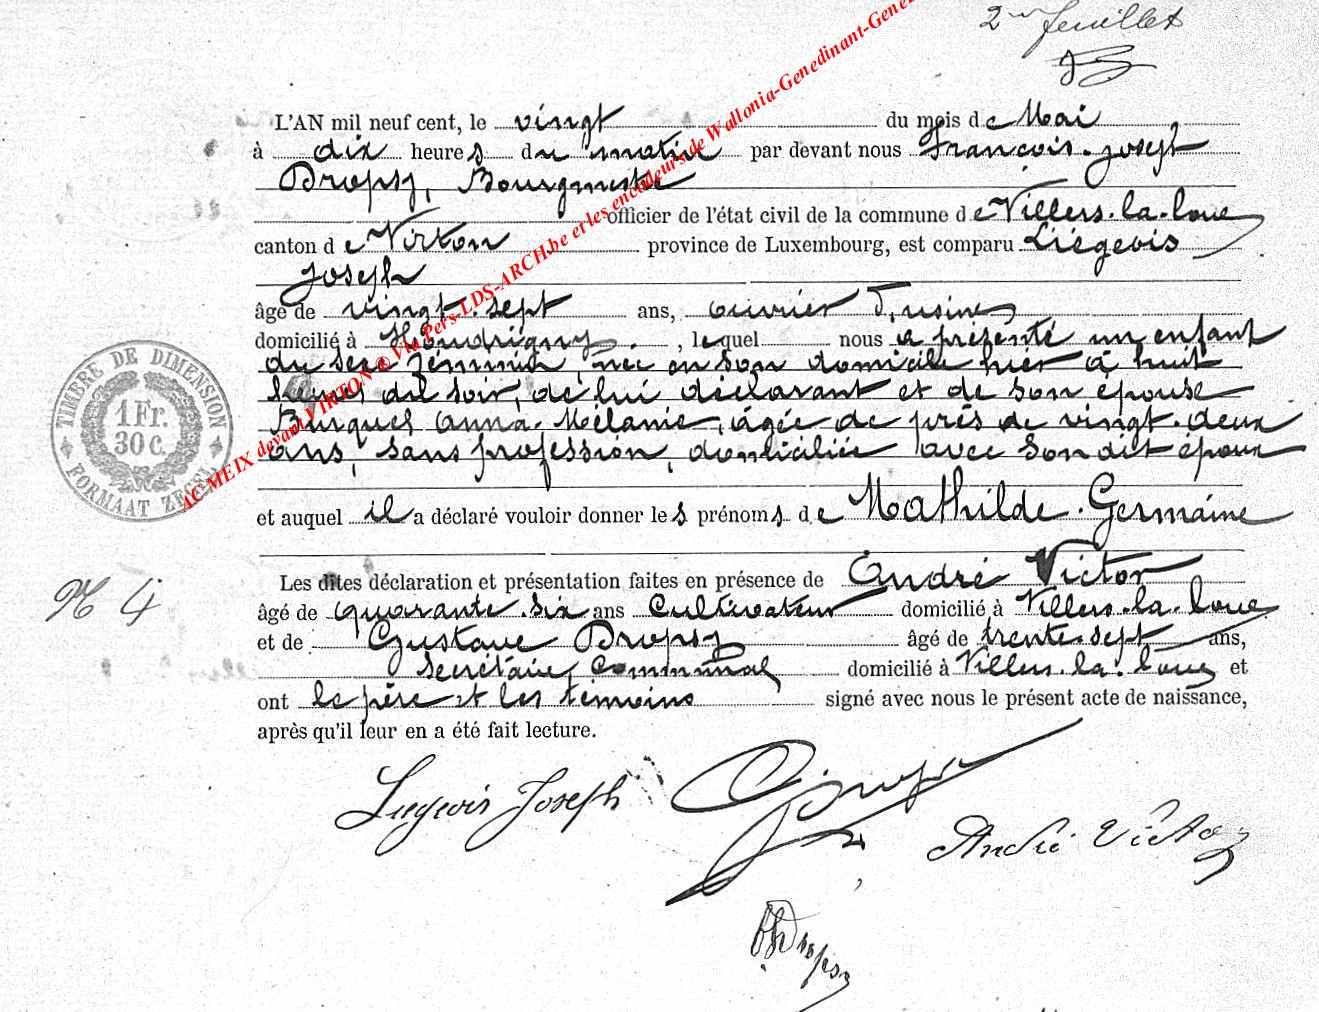 2me feuillet
L'AN mil neuf cent, le vingt du mois de Mai
à dix heures du matin par devant nous François-Joseph
Dropsy, Bourgmestre
officier de l'état civil de la commune de Villers-la-loue
canton de Virton province de Luxembourg, est comparu Liégeois
Joseph
âgé de vingt-sept ans, ouvrier d'usines
domicilié à Houdrigny, lequel nous a présenté un enfant
du sexe féminin, née en son domicile hier à huit
heures du soir, de lui déclarant et de son épouse
Burquel Anna-Mélanie, âgée de près de vingt-deux
ans, sans profession, domiciliée avec son dit époux
et auquel il a déclaré vouloir donner les prénoms de Mathilde-Germaine
Les dites déclaration et présentation faites en présence de André Victor
âgé de quarante-six ans Cultivateur domicilié à Villers-la-loue
et de Gustave Dropsy âgé de trente-sept ans,
secrétaire communal domicilié à Villers-la-loue et
ont le père et les témoins signé avec nous le présent acte de naissance,
après qu'il leur en a été fait lecture.
N 4
TIMBRE DE DIMENSION
1 Fr.
30 C.
FORMAAT ZEGEL
AC MEIX devant VIRTON @ Via Pers-LDS-ARCH.be et les encodeurs de Wallonia-Genedinant-Gene
Liégeois Joseph
Dropsy
André Victor
Dropsy